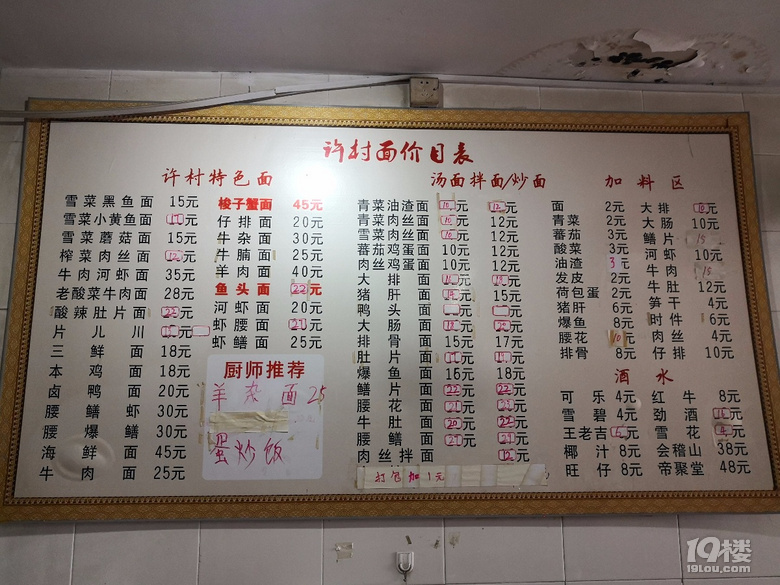 许村面价目表
许村特色面
雪菜黑鱼面 15元
雪菜小黄鱼面 元
雪菜蘑菇面 15元
榨菜肉丝面 12元
牛肉河虾面 35元
老酸菜牛肉面 28元
酸辣肚片面 22元
片儿川 元
三鲜面 18元
本鸡面 18元
卤鸭面 20元
腰鳝虾 30元
腰爆鳝 30元
海鲜面 45元
牛肉面 25元
梭子蟹面 45元
仔排面 20元
牛杂面 30元
牛腩面 25元
羊肉面 40元
鱼头面 22元
河虾面 20元
虾腰面 21元
虾鳝面 25元
厨师推荐
羊杂面 25
蛋炒饭
汤面拌面/炒面
青菜油渣面 10元 12元
青菜肉丝面 10元 12元
雪菜肉丝面 10元 12元
蕃茄鸡蛋面 10元 12元
肉丝鸡蛋面 10元 12元
大排面 元 元
猪肝面 元 15元
鸭头面 元 元
大肠面 元 22元
排骨面 15元 17元
肚片面 元 元
爆鱼面 16元 18元
鳝片面 22元 22元
腰花面 21元 21元
牛肚面 20元 22元
腰鳝面 21元 21元
肉丝拌面 12元
打包加1元
加料区
面 2元
青菜 2元
蕃茄 3元
酸菜 3元
油渣 3元
发皮 2元
荷包蛋 2元
猪肝 6元
爆鱼 8元
腰花 10元
排骨 8元
大排 10元
大肠 10元
鳝片 15
河虾 10元
牛肉 15
牛肚 12元
笋干 4元
时件 6元
肉丝 4元
仔排 10元
酒水
可乐 4元 红牛 8元
雪碧 4元 劲酒 元
王老吉 5元 雪花 元
椰汁 8元 会稽山 38元
旺仔 8元 帝聚堂 48元
19楼
19lou.com